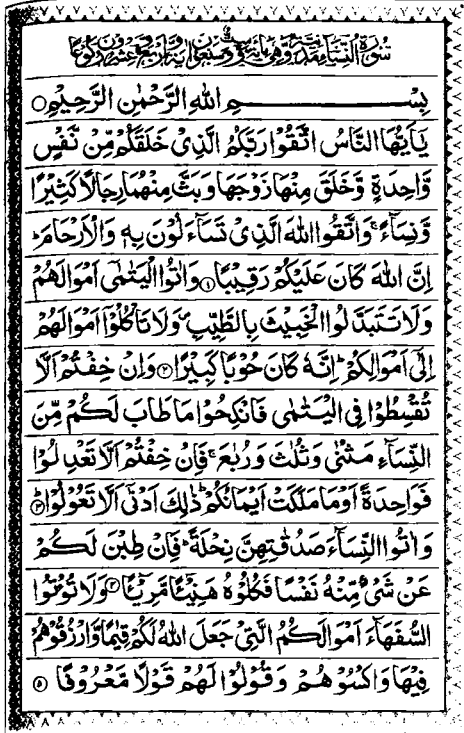 سُوْرَةُ النِّسَآءِ مَدَنِیَّةٌ وَّهِیَ مِائَةٌ وَّسِتٌّ وَّسَبْعُوْنَ اٰیَةً وَّاَرْبَعٌ وَّعِشْرُوْنَ رُکُوْعًا
بِسْمِ اللهِ الرَّحْمٰنِ الرَّحِیْمِ ○
یٰۤاَیُّهَا النَّاسُ اتَّقُوْا رَبَّکُمُ الَّذِیْ خَلَقَکُمْ مِّنْ نَّفْسٍ
وَّاحِدَةٍ وَّخَلَقَ مِنْهَا زَوْجَهَا وَبَثَّ مِنْهُمَا رِجَالًا کَثِیْرًا
وَّنِسَآءً ۚ وَاتَّقُوا اللهَ الَّذِیْ تَسَآءَلُوْنَ بِهٖ وَالْاَرْحَامَ ؕ
اِنَّ اللهَ کَانَ عَلَیْکُمْ رَقِیْبًا ۱ وَاٰتُوا الْیَتٰمٰۤی اَمْوَالَهُمْ
وَلَا تَتَبَدَّلُوا الْخَبِیْثَ بِالطَّیِّبِ ۪ وَلَا تَاْکُلُوْۤا اَمْوَالَهُمْ
اِلٰۤی اَمْوَالِکُمْ ؕ اِنَّهٗ کَانَ حُوْبًا کَبِیْرًا ۲ وَاِنْ خِفْتُمْ اَلَّا
تُقْسِطُوْا فِی الْیَتٰمٰی فَانْکِحُوْا مَا طَابَ لَکُمْ مِّنَ
النِّسَآءِ مَثْنٰی وَثُلٰثَ وَرُبٰعَ ۚ فَاِنْ خِفْتُمْ اَلَّا تَعْدِلُوْا
فَوَاحِدَةً اَوْ مَا مَلَکَتْ اَیْمَانُکُمْ ؕ ذٰلِكَ اَدْنٰۤی اَلَّا تَعُوْلُوْا ؕ ۳
وَاٰتُوا النِّسَآءَ صَدُقٰتِهِنَّ نِحْلَةً ؕ فَاِنْ طِبْنَ لَکُمْ
عَنْ شَیْءٍ مِّنْهُ نَفْسًا فَکُلُوْهُ هَنِیْٓئًا مَّرِیْٓئًا ۴ وَلَا تُؤْتُوا
السُّفَهَآءَ اَمْوَالَکُمُ الَّتِیْ جَعَلَ اللهُ لَکُمْ قِیٰمًا وَّارْزُقُوْهُمْ
فِیْهَا وَاکْسُوْهُمْ وَقُوْلُوْا لَهُمْ قَوْلًا مَّعْرُوْفًا ۵